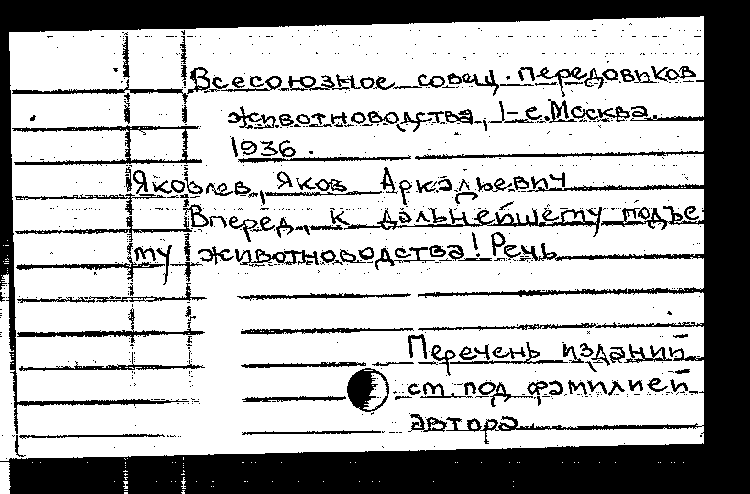 Всесоюзное совещ. передовиков
животноводства, 1-е. Москва.
1936.
Яковлев, Яков Аркадьевич
Вперед, к дальнейшему подъе
му животноводства! Речь
Перечень изданий
см. под фамилией
автора